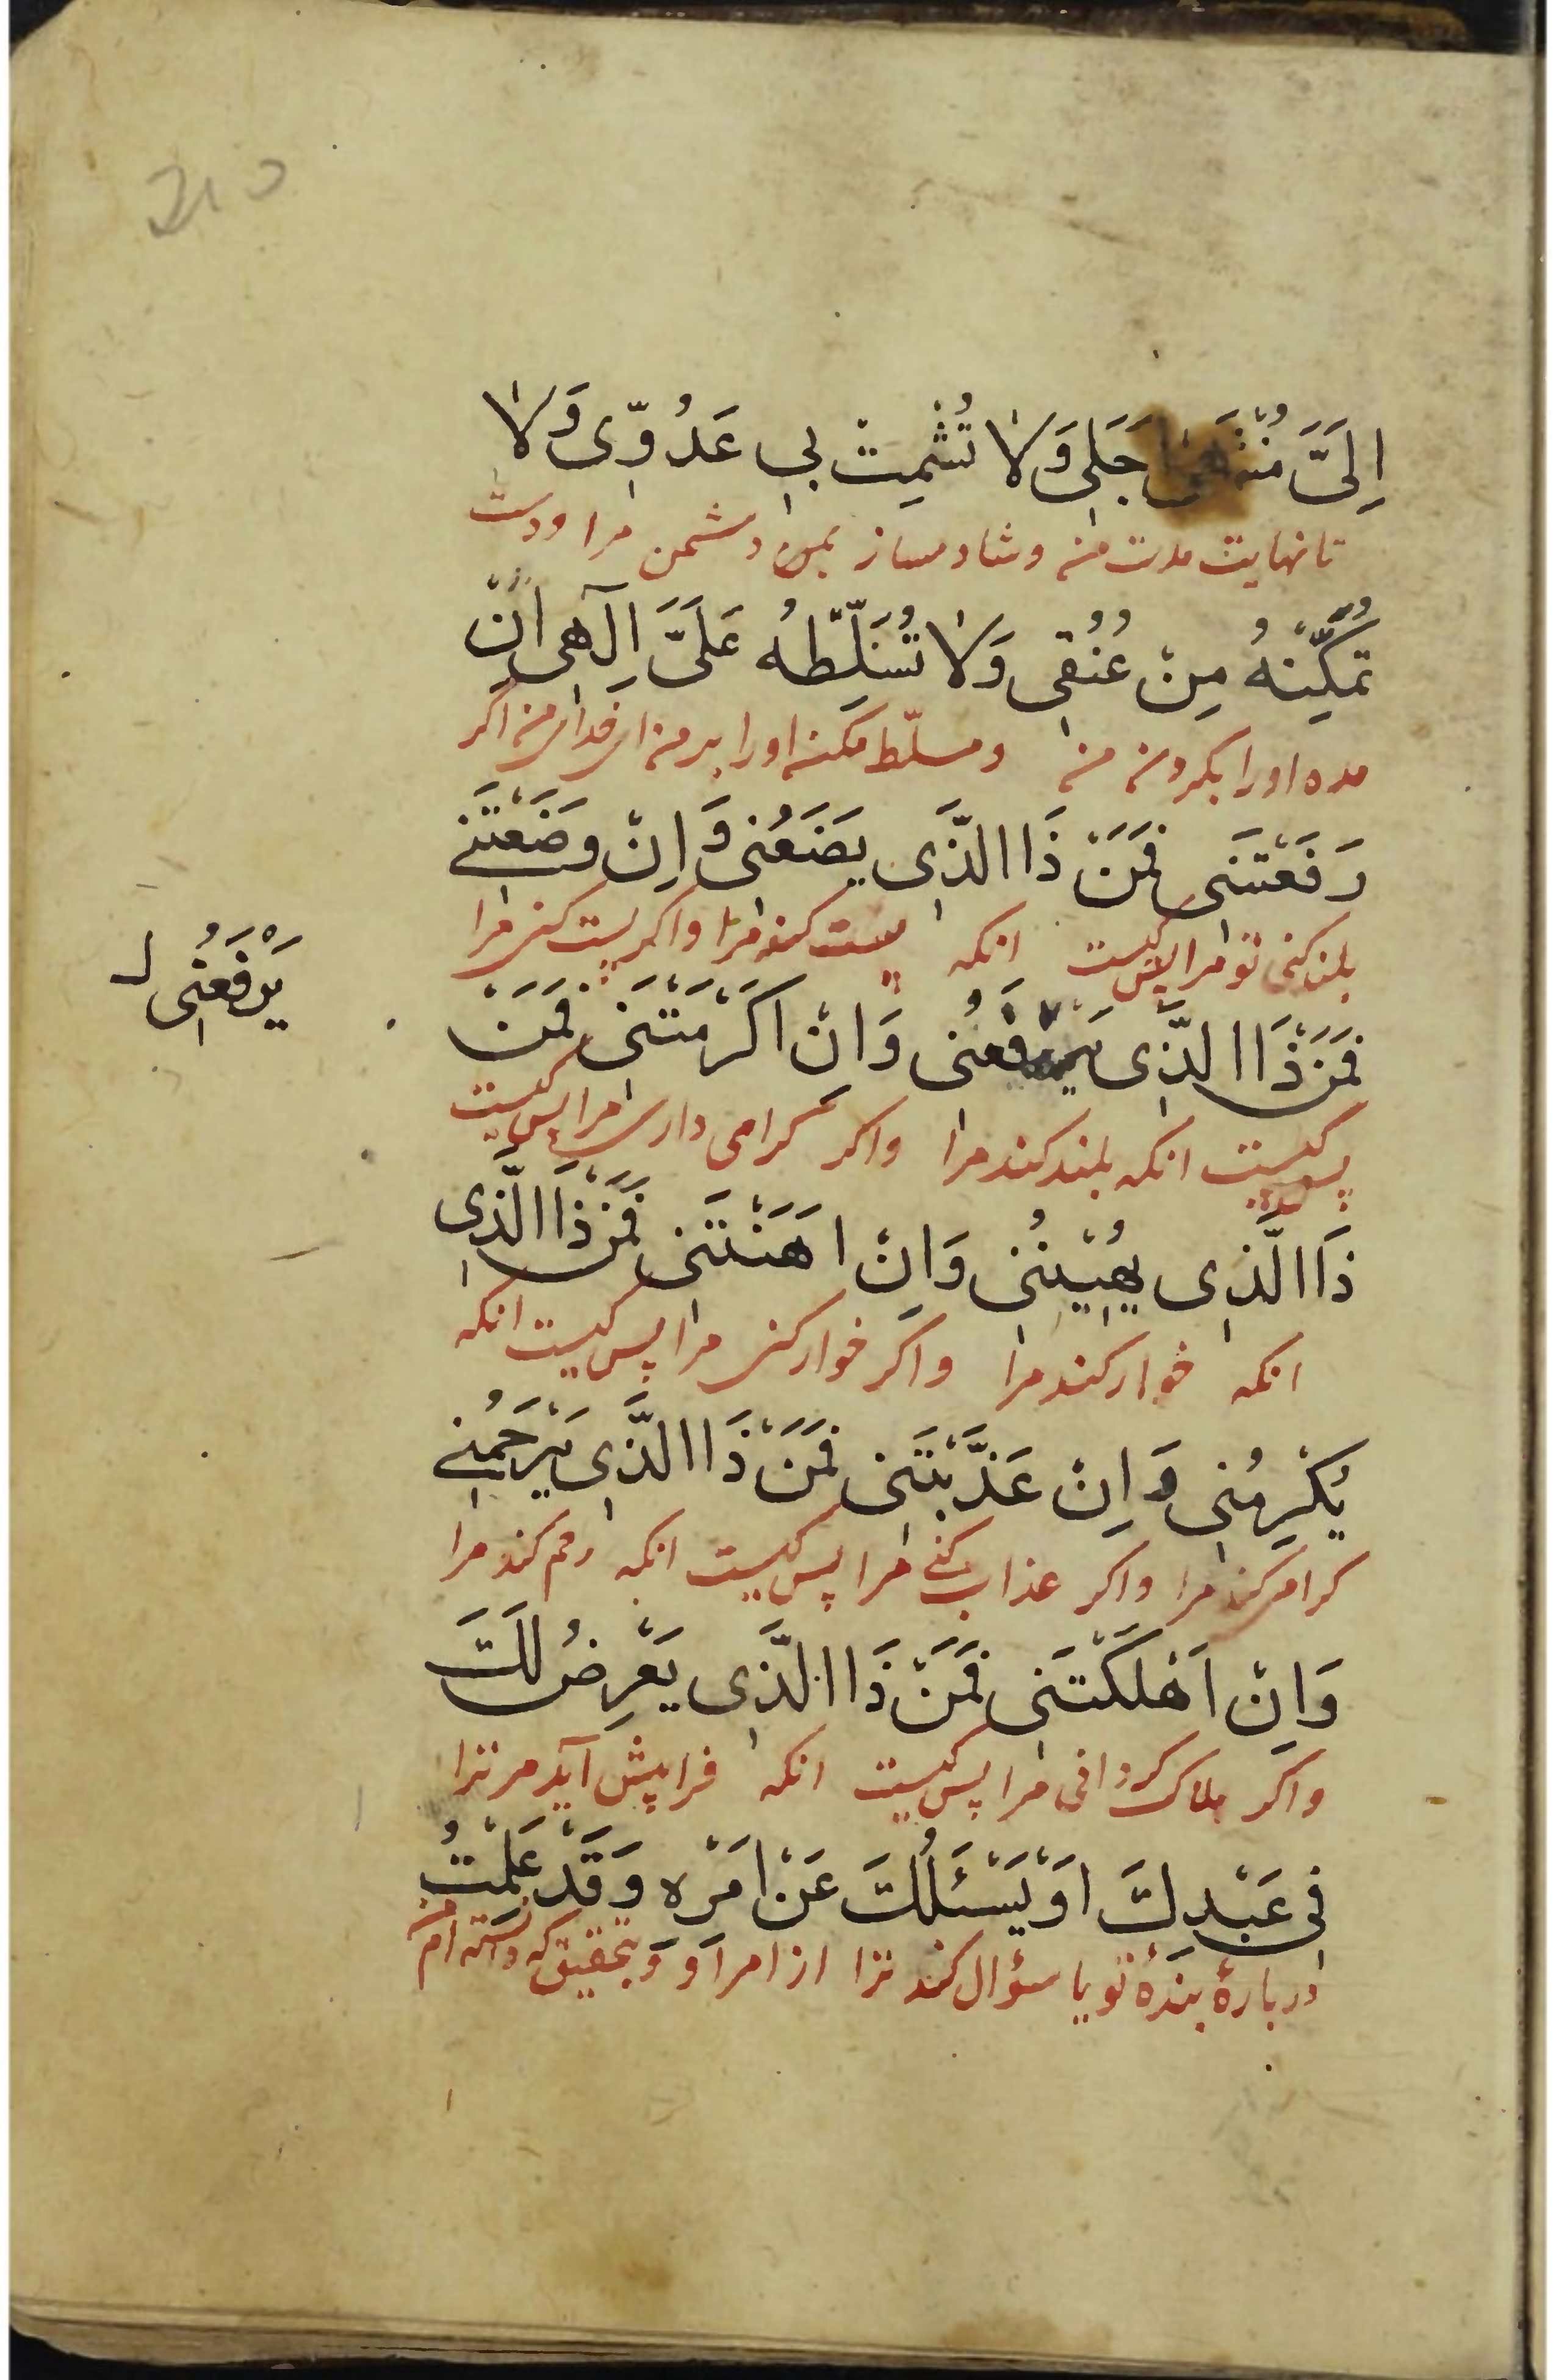 اِلَىَّ مُنْتَهىٰ اَجَلِى وَلَا تُشْمِتْ بِى عَدُوِّى وَلَا
تا نهایت مدت من و شاد مساز بمن دشمن مرا و دست
تُمَكِّنْهُ مِنْ عُنُقِى وَلَا تُسَلِّطْهُ عَلَىَّ اِلٰهِى اِنْ
مده او را بگردن من و مسلّط مکن او را بر من ای خدای من اگر
رَفَعْتَنِى فَمَنْ ذَا الَّذِى يَضَعُنِى وَاِنْ وَضَعْتَنِى
بلند کنی تو مرا پس کیست انکه پست کند مرا و اکر پست کنی مرا
فَمَنْ ذَا الَّذِى يَرْفَعُنِى وَاِنْ اَكْرَمْتَنِى فَمَنْ
يَرْفَعُنِى
پس کیست انکه بلند کند مرا و اکر گرامی داری مرا پس کیست
ذَا الَّذِى يُهِيْنُنِى وَاِنْ اَهَنْتَنِى فَمَنْ ذَا الَّذِى
انکه خوار کند مرا و اکر خوار کنی مرا پس کیست انکه
يُكْرِمُنِى وَاِنْ عَذَّبْتَنِى فَمَنْ ذَا الَّذِى يَرْحَمُنِى
کرامی کند مرا و اکر عذاب کنی مرا پس کیست انکه رحم کند مرا
وَاِنْ اَهْلَكْتَنِى فَمَنْ ذَا الَّذِى يَعْرِضُ لَكَ
و اکر هلاک کردانی مرا پس کیست انکه فرا پیش آید مر ترا
فِى عَبْدِكَ اَوْ يَسْئَلُكَ عَنْ اَمْرِهِ وَقَدْ عَلِمْتُ
در بارهٔ بندهٔ تو یا سؤال کند ترا از امر او و بتحقیق که دانسته ام